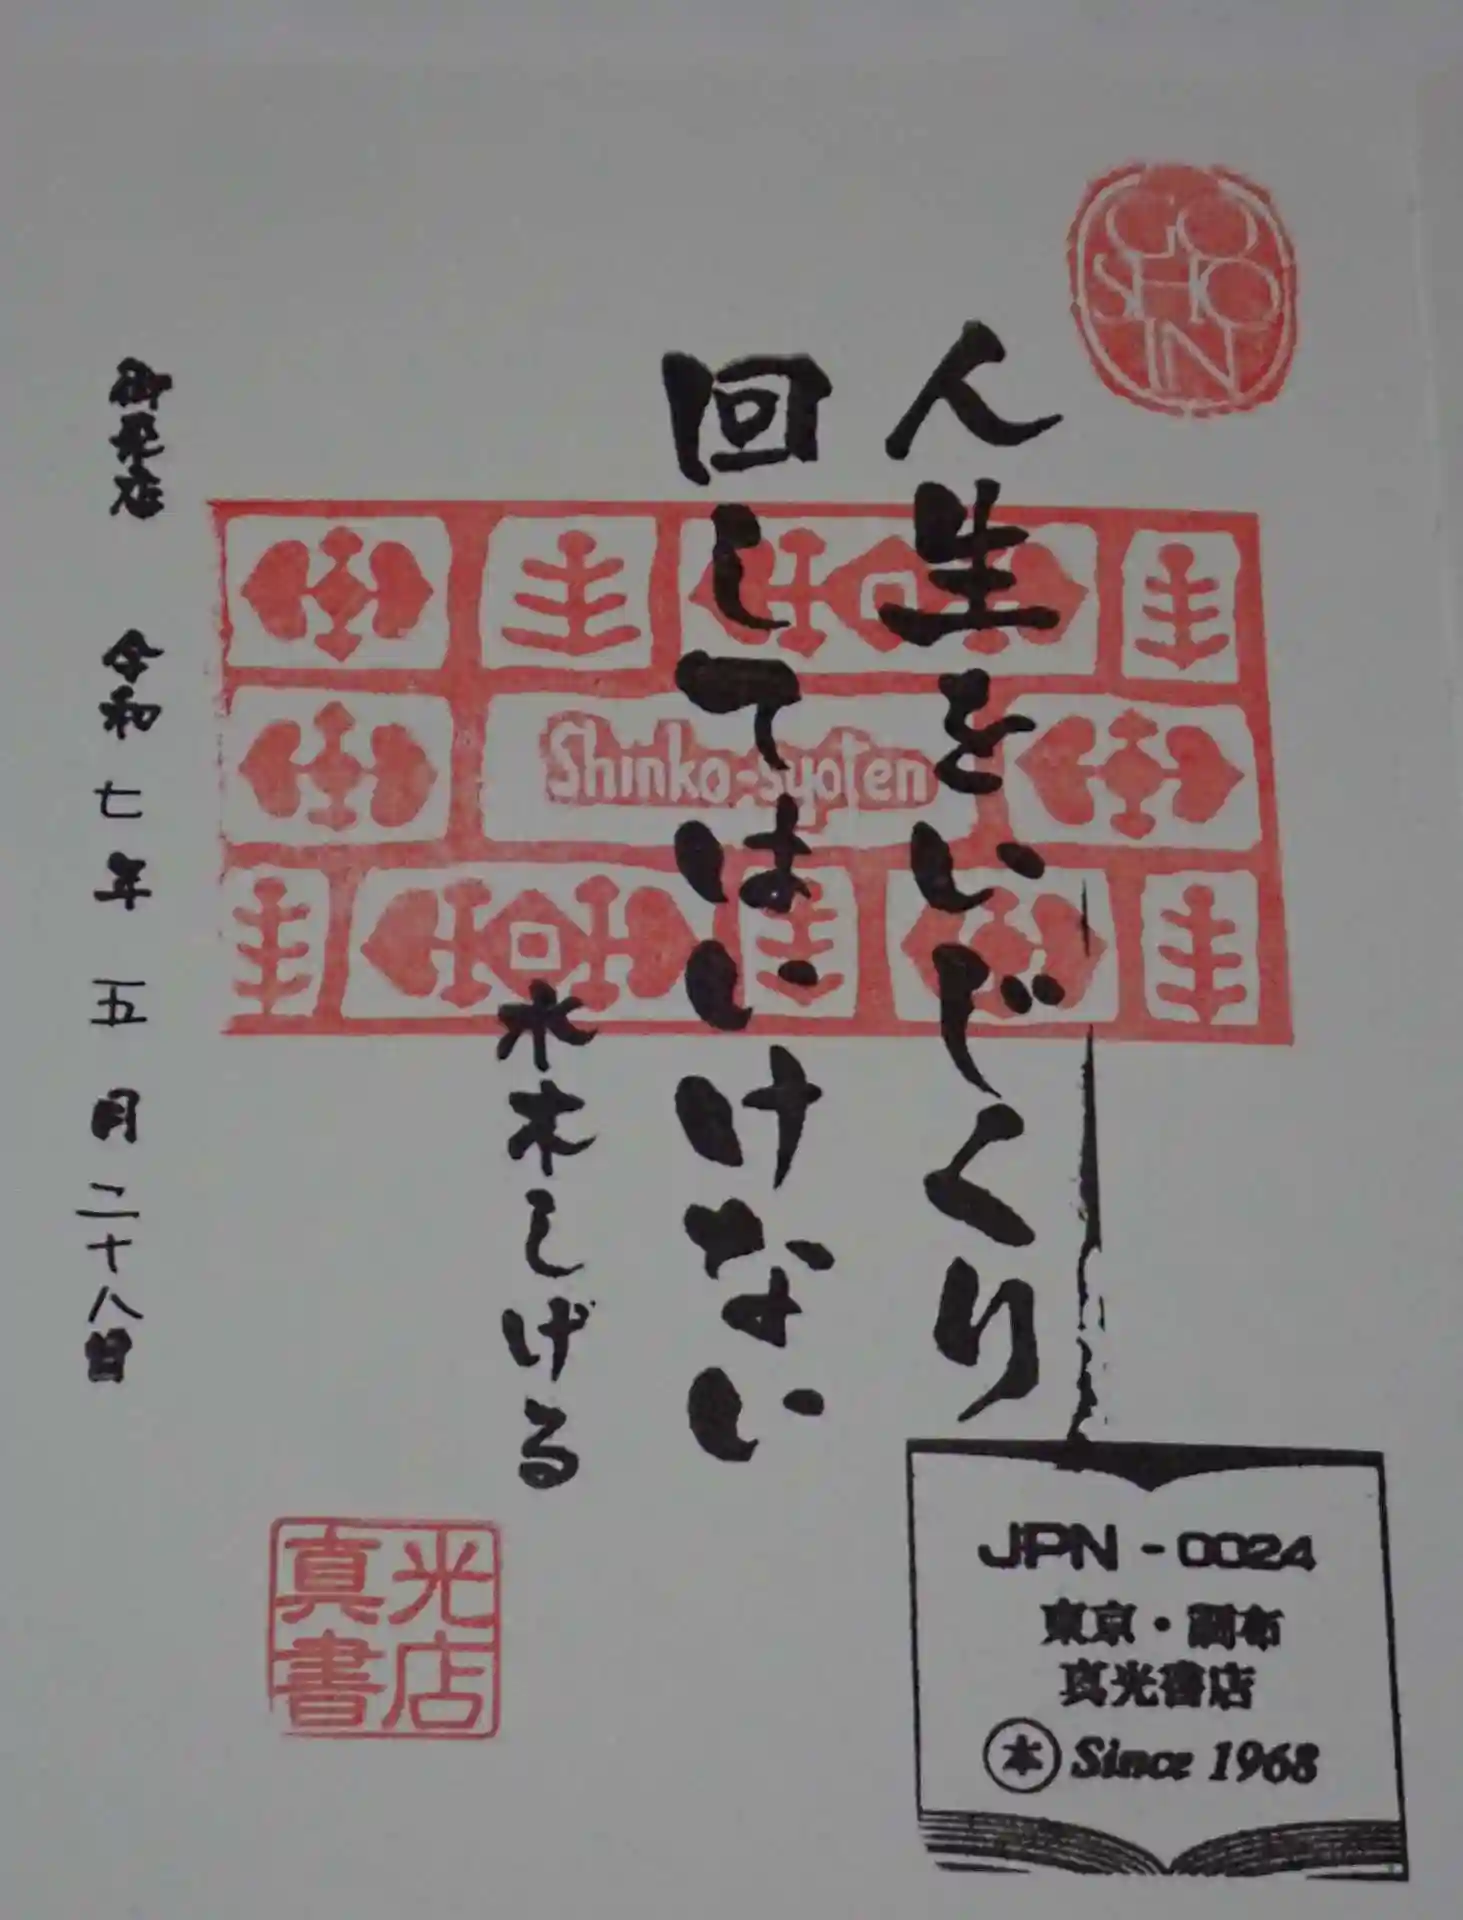 GO
SHO
IN
人生をいじくり
回してはいけない
水木しげる
Shinko-syoten
御来店 令和七年五月二十八日
真光
書店
JPN-0024
東京・調布
真光書店
本 Since 1968